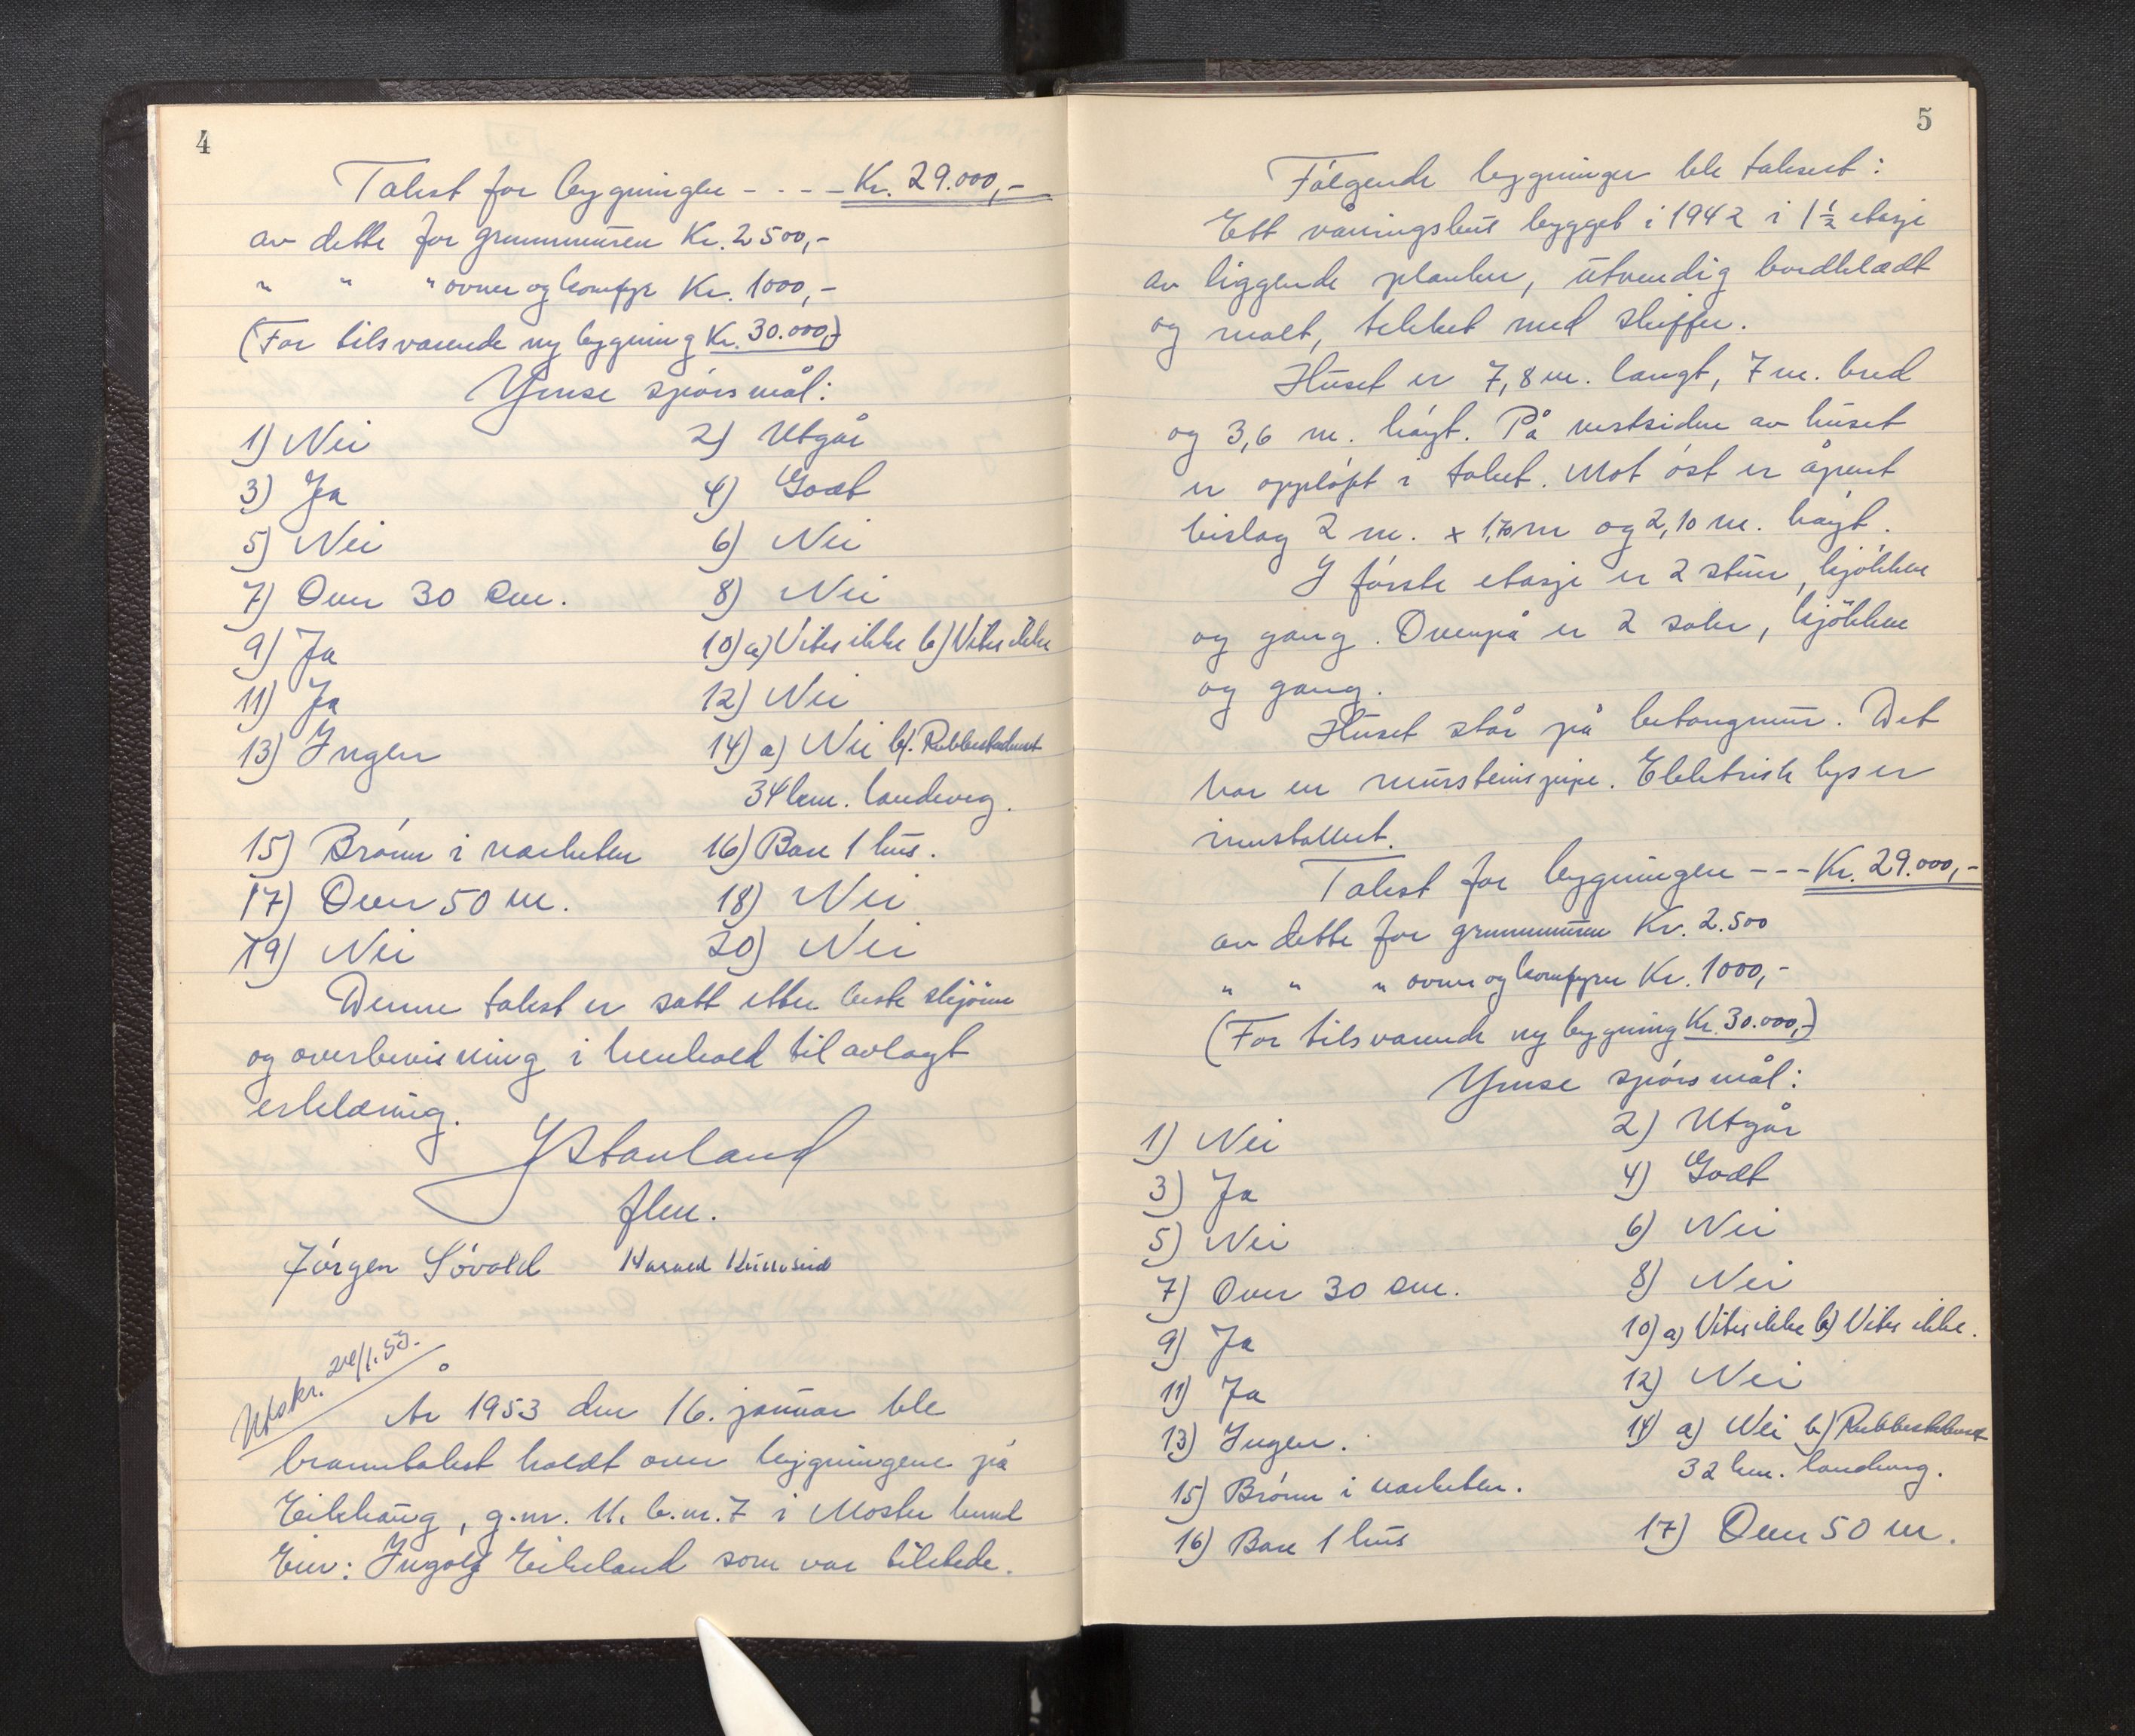 4
Takst for bygningen - - - - Kr. 29.000,-
av dette for grunnmuren Kr. 2500,-
" " " ovner og komfyr Kr. 1000,-
(For tilsvarende ny bygning Kr. 30.000,-)
Ymse spörsmål:
1) Nei 2) Utgår
3) Ja 4) Godt
5) Nei 6) Nei
7) Over 30 cm. 8) Nei
9) Ja 10) a) Vites ikke b) Vites ikke
11) Ja 12) Nei
13) Ingen 14) a) Nei b). Rubbestadneset
34 km. landeveg.
15) Brönn i närheten 16) Bare 1 hus.
17) Over 50 m. 18) Nei
19) Nei 20) Nei
Denne takst er satt etter beste skjönn
og overbevisning i henhold til avlagt
erklæring.
J Stauland
flm.
Jörgen Lövold Harald
Utskr. 24/1.53.
År 1953 den 16. januar ble
branntakst holdt over bygningene på
Eikhaug, g.nr. 11. b.nr. 7 i Moster herred
Eier: Ingolf Eikeland som var tilstede.
5
Fölgende bygninger ble taksert:
Ett våningshus bygget i 1942 i 1 1/2 etasje
av liggende planker, utvendig bordklædt
og malt, tekket med skiffer.
Huset er 7,8 m. langt, 7 m. bred
og 3,6 m. höyt. På vestsiden av huset
er oppløft i taket. Mot öst er åpent
bislag 2 m. x 1,70 m og 2,10 m. höyt.
I förste etasje er 2 stuer, kjökken
og gang. Ovenpå er 2 saler, kjökken
og gang.
Huset står på betongmur. Det
har en mursteinspipe. Elektrisk lys er
innstallert.
Takst for bygningen - - - Kr. 29.000,-
av dette for grunnmuren Kr. 2.500
" " " ovner og komfyrer Kr. 1000,-
(For tilsvarende ny bygning Kr. 30.000,-)
Ymse spörsmål:
1) Nei 2) Utgår
3) Ja 4) Godt
5) Nei 6) Nei
7) Over 30 cm. 8) Nei
9) Ja 10) a) Vites ikke b) Vites ikke.
11) Ja 12) Nei
13) Ingen. 14) a) Nei b) Rubbestadneset
32 km. landeveg.
15) Brönn i närheten.
16) Bare 1 hus 17) Over 50 m.